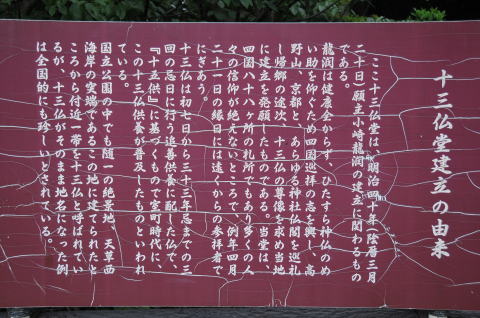 十三仏堂建立の由来
ここ十三仏堂は、明治四十年(陰暦三月
二十日)願主小崎龍潤の建立に関わるもの
である。
龍潤は健康全からず、ひたすら神仏のめ
い助を仰ぐため四国巡拝の志を興し、高
野山、京都と、あらゆる神社仏閣を巡礼
し帰郷の途次、十三仏の尊像を求め当地
に建立を発願したものである。当堂は、
四国八十八ヶ所の札所でもあり多くの人
々の信仰が絶えないところで、例年四月
二十一日の縁日には遠くからの参拝者で
にぎあう。
十三仏は初七日から三十三年忌までの三
回の忌日に行う追善供養に配した仏で、
『十五供』に基づくもので室町時代に、
この十三仏供養が普及したものといわれ
ている。
国立公園の中でも随一の絶景地、天草西
海岸の突端であるこの地に建てられたと
ころから付近一帯を十三仏と呼ばれてい
るが、十三仏がそのまま地名になった例
は全国的にも珍しいとされている。